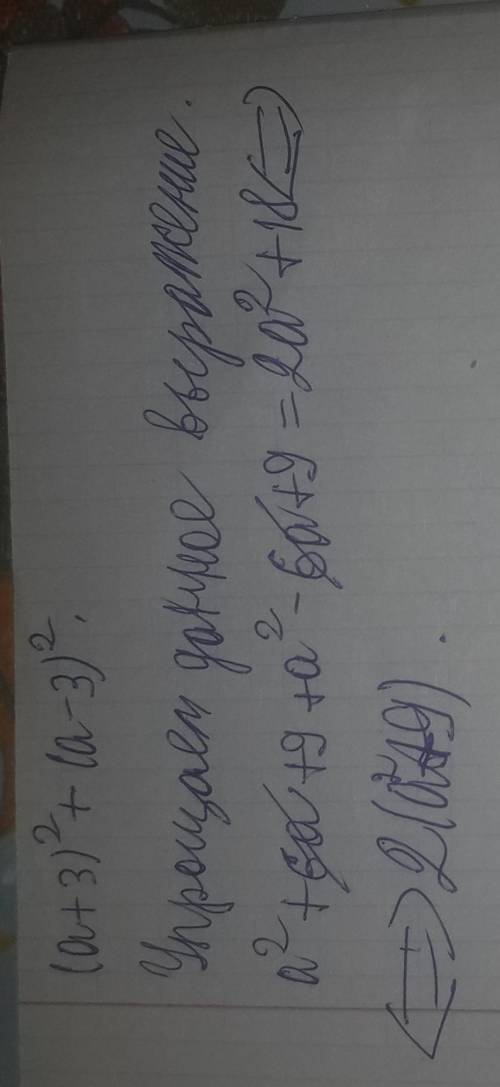 (a+3)²+(a-3)².
Упрощаем данное выражение.
a²+6a+9+a²-6a+9=2a²+18⟨=⟩
⟨=⟩2(a²+9).